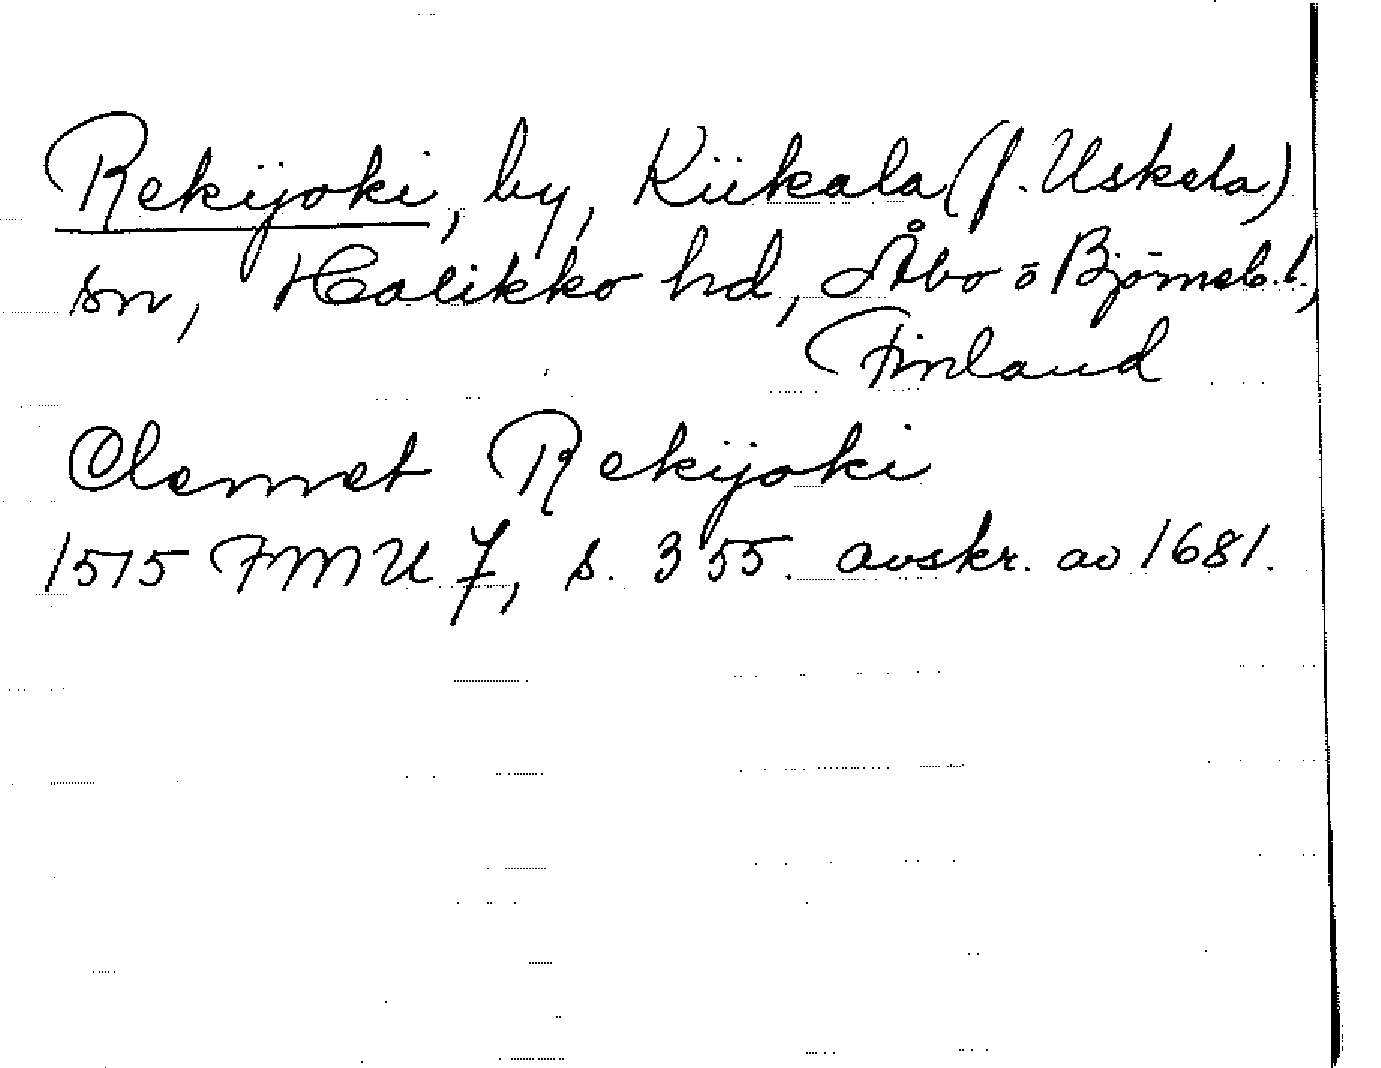 Rekijoki, by, Kiikala (f. Uskela)
sn, Halikko hd, Åbo o Björneb. l.,
Finland
Clemet Rekijoki
1515 FMU 7, s. 355. avskr. av 1681.